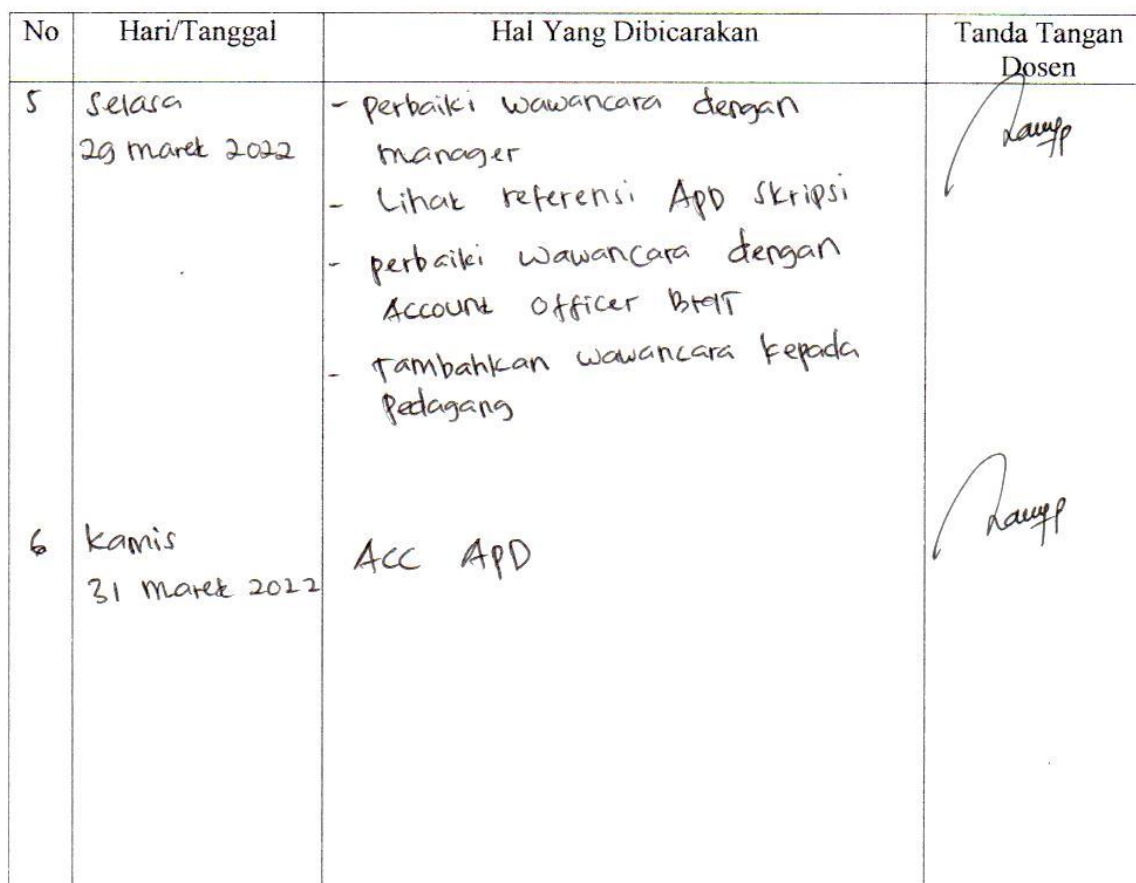 No Hari/Tanggal Hal Yang Dibicarakan Tanda Tangan
Dosen
5 Selasa - perbaiki wawancara dengan
29 maret 2022 manager
- Lihat referensi APD Skripsi
- perbaiki wawancara dengan
Account Officer
- Tambahkan wawancara kepada
Pedagang
6 Kamis Acc APD
31 Maret 2022